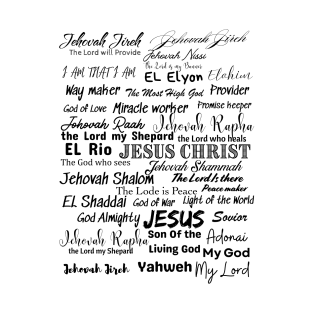 Jehovah Jireh Jehovah Jireh
The Lord will Provide Jehovah Nissi
the Lord is my Banner
I AM THAT I AM EL ELyon Elohim
Way maker The Most High God Provider
God of Love Miracle worker Promise keeper
Johovah Raah Jehovah Rapha
the Lord my Shepard the Lord who heals
EL Rio JESUS CHRIST
The God who sees Jehovah Shammah
Jehovah Shalom The Lord is there
The Lode is Peace Peace maker
EL Shaddai God of War Light of the World
God Almighty JESUS Savior
Jehovah Rapha Son Of the Adonai
the Lord my Shepard Living God My God
Jehovah Jireh Yahweh My Lord